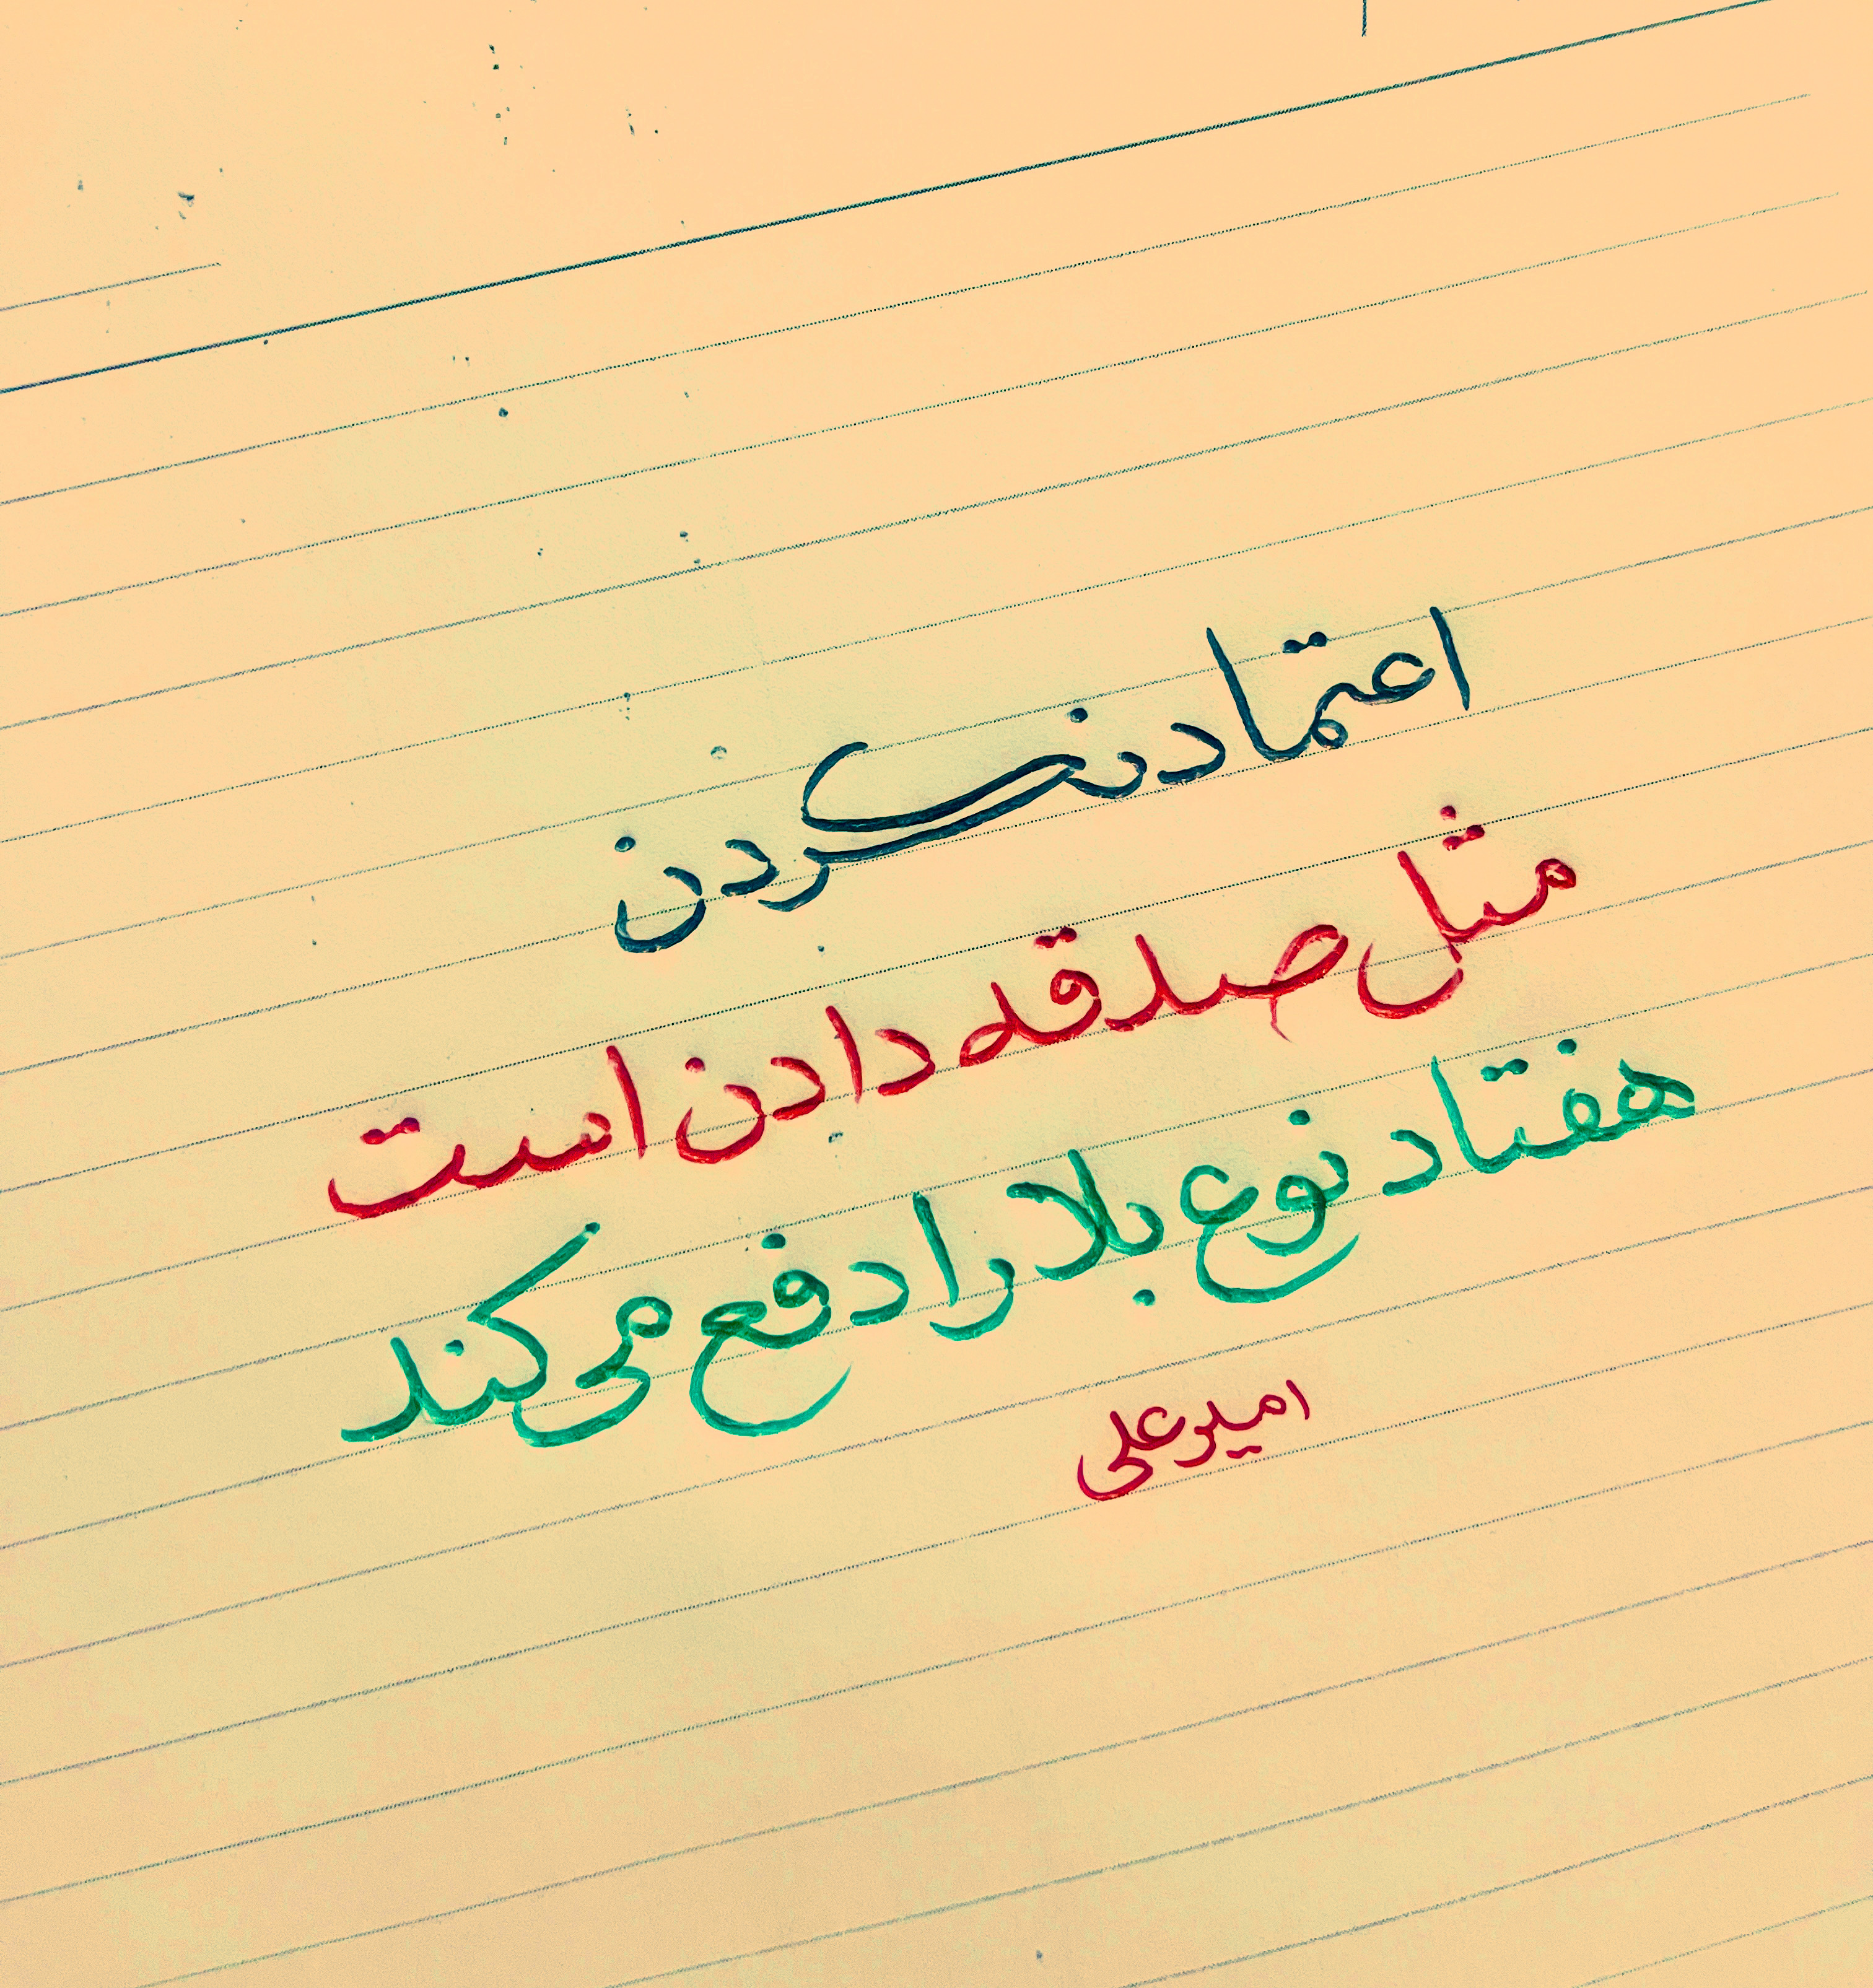 اعتماد نکردن
مثل صدقه دادن است
هفتاد نوع بلا را دفع می کند
امیر علی